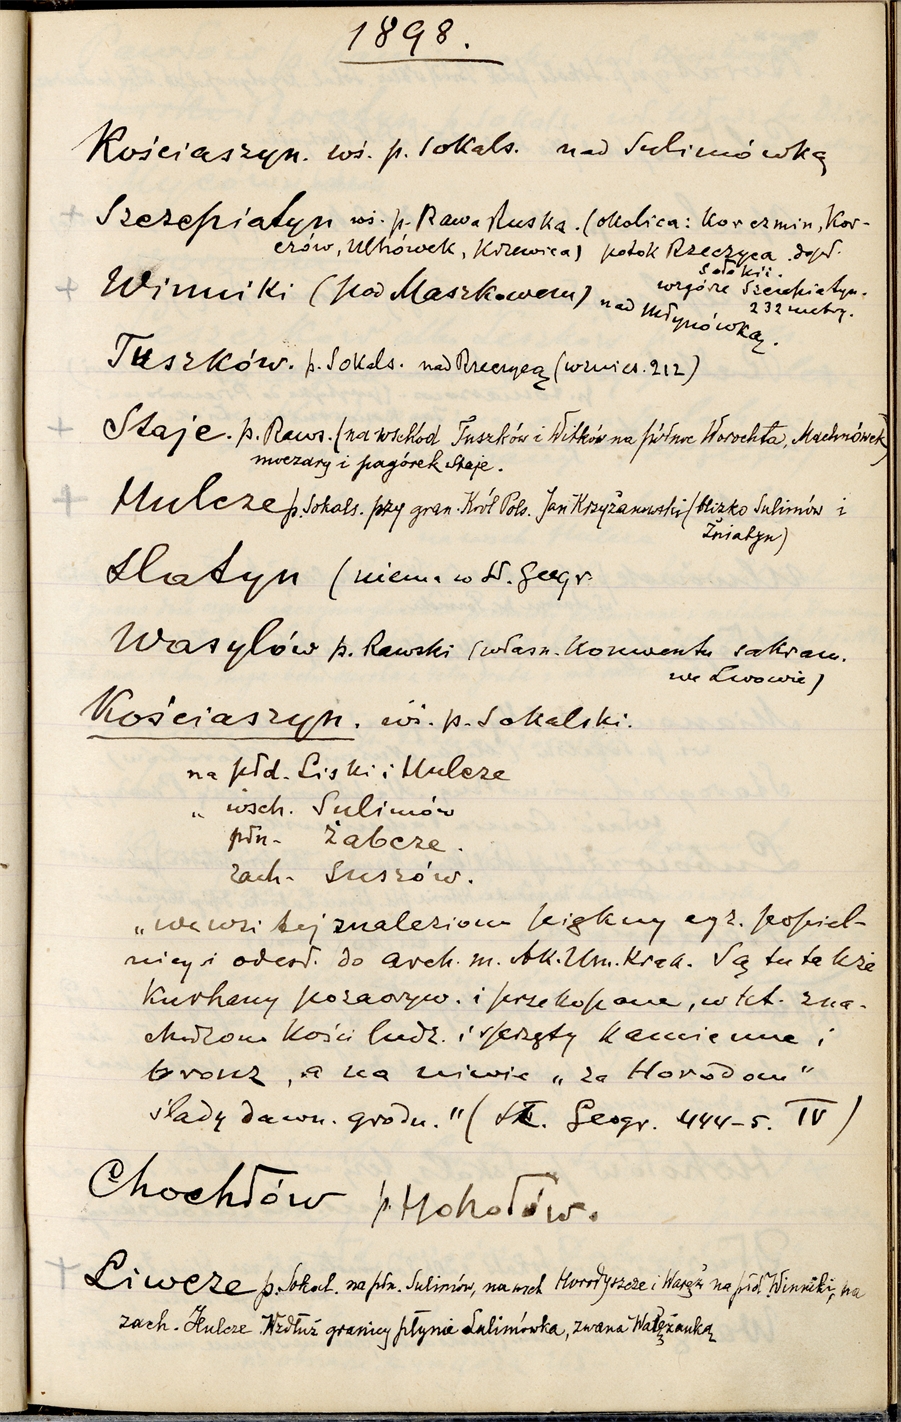 1898.
Kościaszyn. wś. p. Sokals. nad Sulimówką
+ Szczepiatyn wś. p. Rawa Ruska. (okolica: Korczmin, Kor-
czów, Uhnówek, Krzewica) potok Rzeczyca dopł.
Sołokii.
wzgórze Szczepiatyn.
232 metry.
+ Winniki (pod Maszkowem) nad Młynówką.
Tuszków. p. Sokals. nad Rzeczycą (wznies. 212)
+ Staje. p. Raws. (na wschód Tuszków i Witków na północ Worochta, Machnówek)
moczary i pagórek Staje.
+ Hulcze p. Sokals. przy gran. Król Pols. Jan Krzyżanowski (blizko Sulimów i
Żniatyn)
Slatyn (niema w Sł. Geogr.
Wasylów p. Rawski (własn. Konwentu sakram.
we Lwowie)
Kościaszyn. wś. p. Sokalski.
na płd. Liski i Hulcze
„ wsch. Sulimów
płn. Żabcze.
zach. Suszów.
„we wsi tej znaleziono piękny egz. popiel-
nicy i odesł. do arch. m. Ak. Um. Krak. Są tu także
Kurhany pozaoryw. i przekopane, w kt. zna-
chodzono kości ludz. i sprzęty kamienne i
bronz, a na niwie „za Horodom"
ślady dawn. grodu." (Sł. Geogr. 444-5. IV)
Chochłów p. Hohołów.
+ Liwcze p. Sokal. na płn. Sulimów, na wsch Horodyszcze i Waręż na płd. Winniki, na
zach. Hulcze Wzdłuż granicy płynie Sulimówka, zwana Warężanką